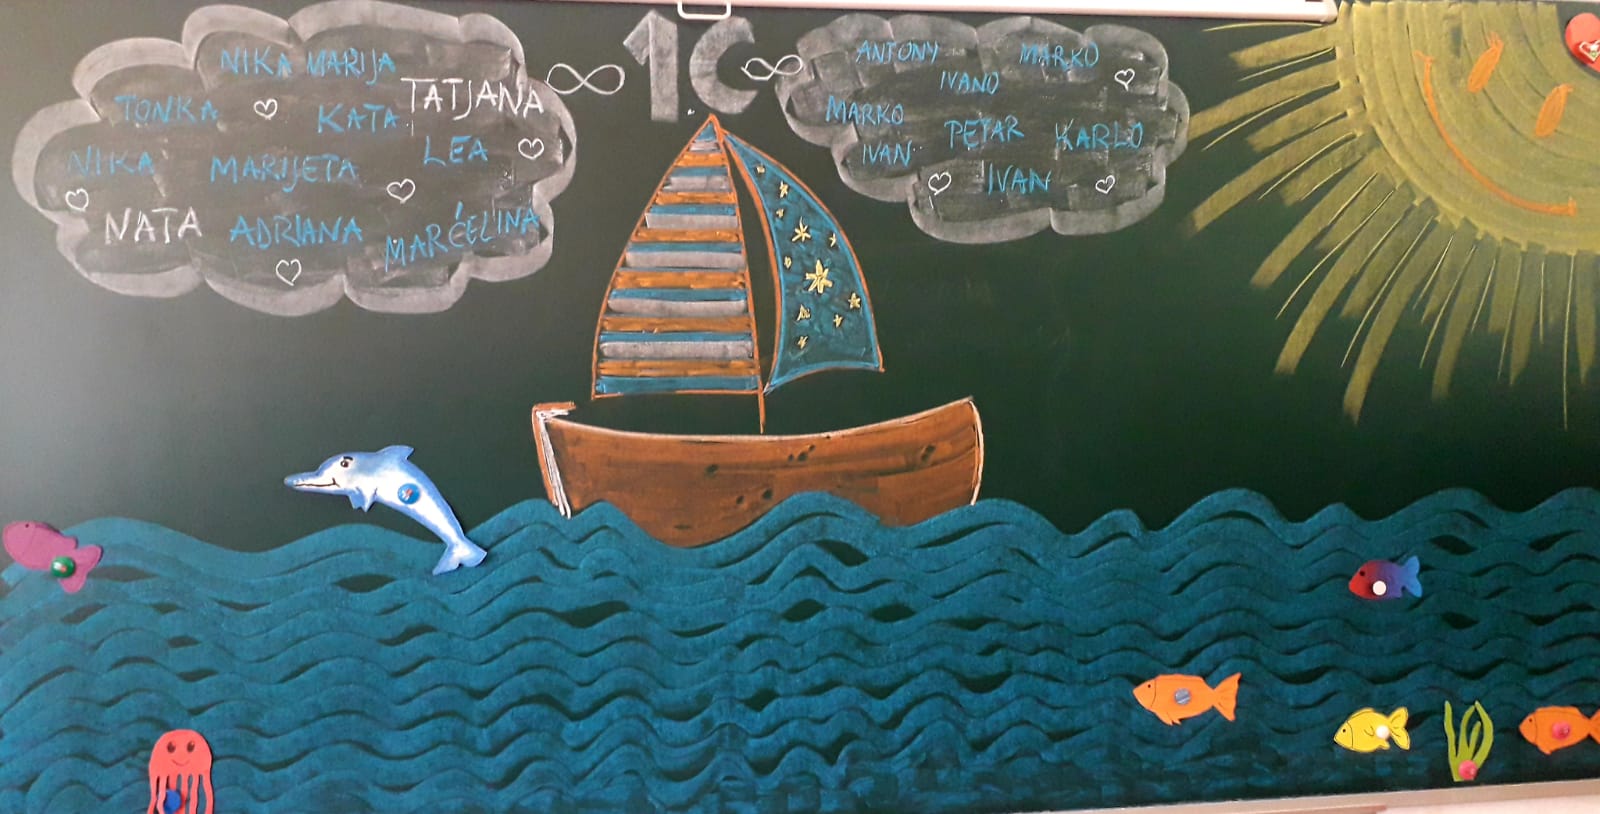 NIKA MARIJA
TONKA KATA TATJANA
NIKA MARIJETA LEA
NATA ADRIANA MARĆELINA
1.C
ANTONY MARKO
IVANO
MARKO PETAR KARLO
IVAN
IVAN